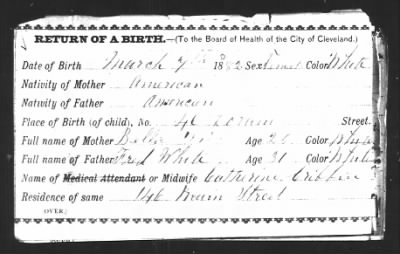 RETURN OF A BIRTH.—(To the Board of Health of the City of Cleveland.)
Date of Birth March 7th 1882 Sex Femal Color White
Nativity of Mother American
Nativity of Father American
Place of Birth (of child), No. 46 Street.
Full name of Mother Bella Age 26 Color White
Full name of Father Fred White Age 31 Color White
Name of Medical Attendant or Midwife Catherine Cribbin
Residence of same 146 Street
OVER)